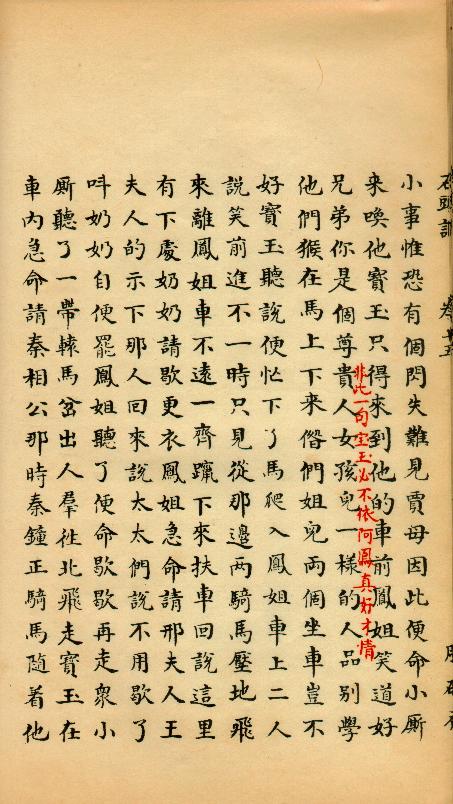 石頭記 卷十五
小事惟恐有個閃失難見賈母因此便命小厮
來喚他寶玉只得來到他的車前鳳姐笑道好
非此一句宝玉必不依阿鳳真好才情
兄弟你是個尊貴人女孩兒一樣的人品別學
他們猴在馬上下來偺們姐兒兩個坐車豈不
好寶玉聽說便忙下了馬爬入鳳姐車上二人
說笑前進不一時只見從那邊兩騎馬壓地飛
來離鳳姐車不遠一齊躧下來扶車回說這里
有下處奶奶請歇更衣鳳姐急命請邢夫人王
夫人的示下那人回來說太太們說不用歇了
呌奶奶自便罷鳳姐聽了便命歇歇再走衆小
厮聽了一帶轅馬岔出人羣徃北飛走寶玉在
車內急命請秦相公那時秦鐘正騎馬隨着他